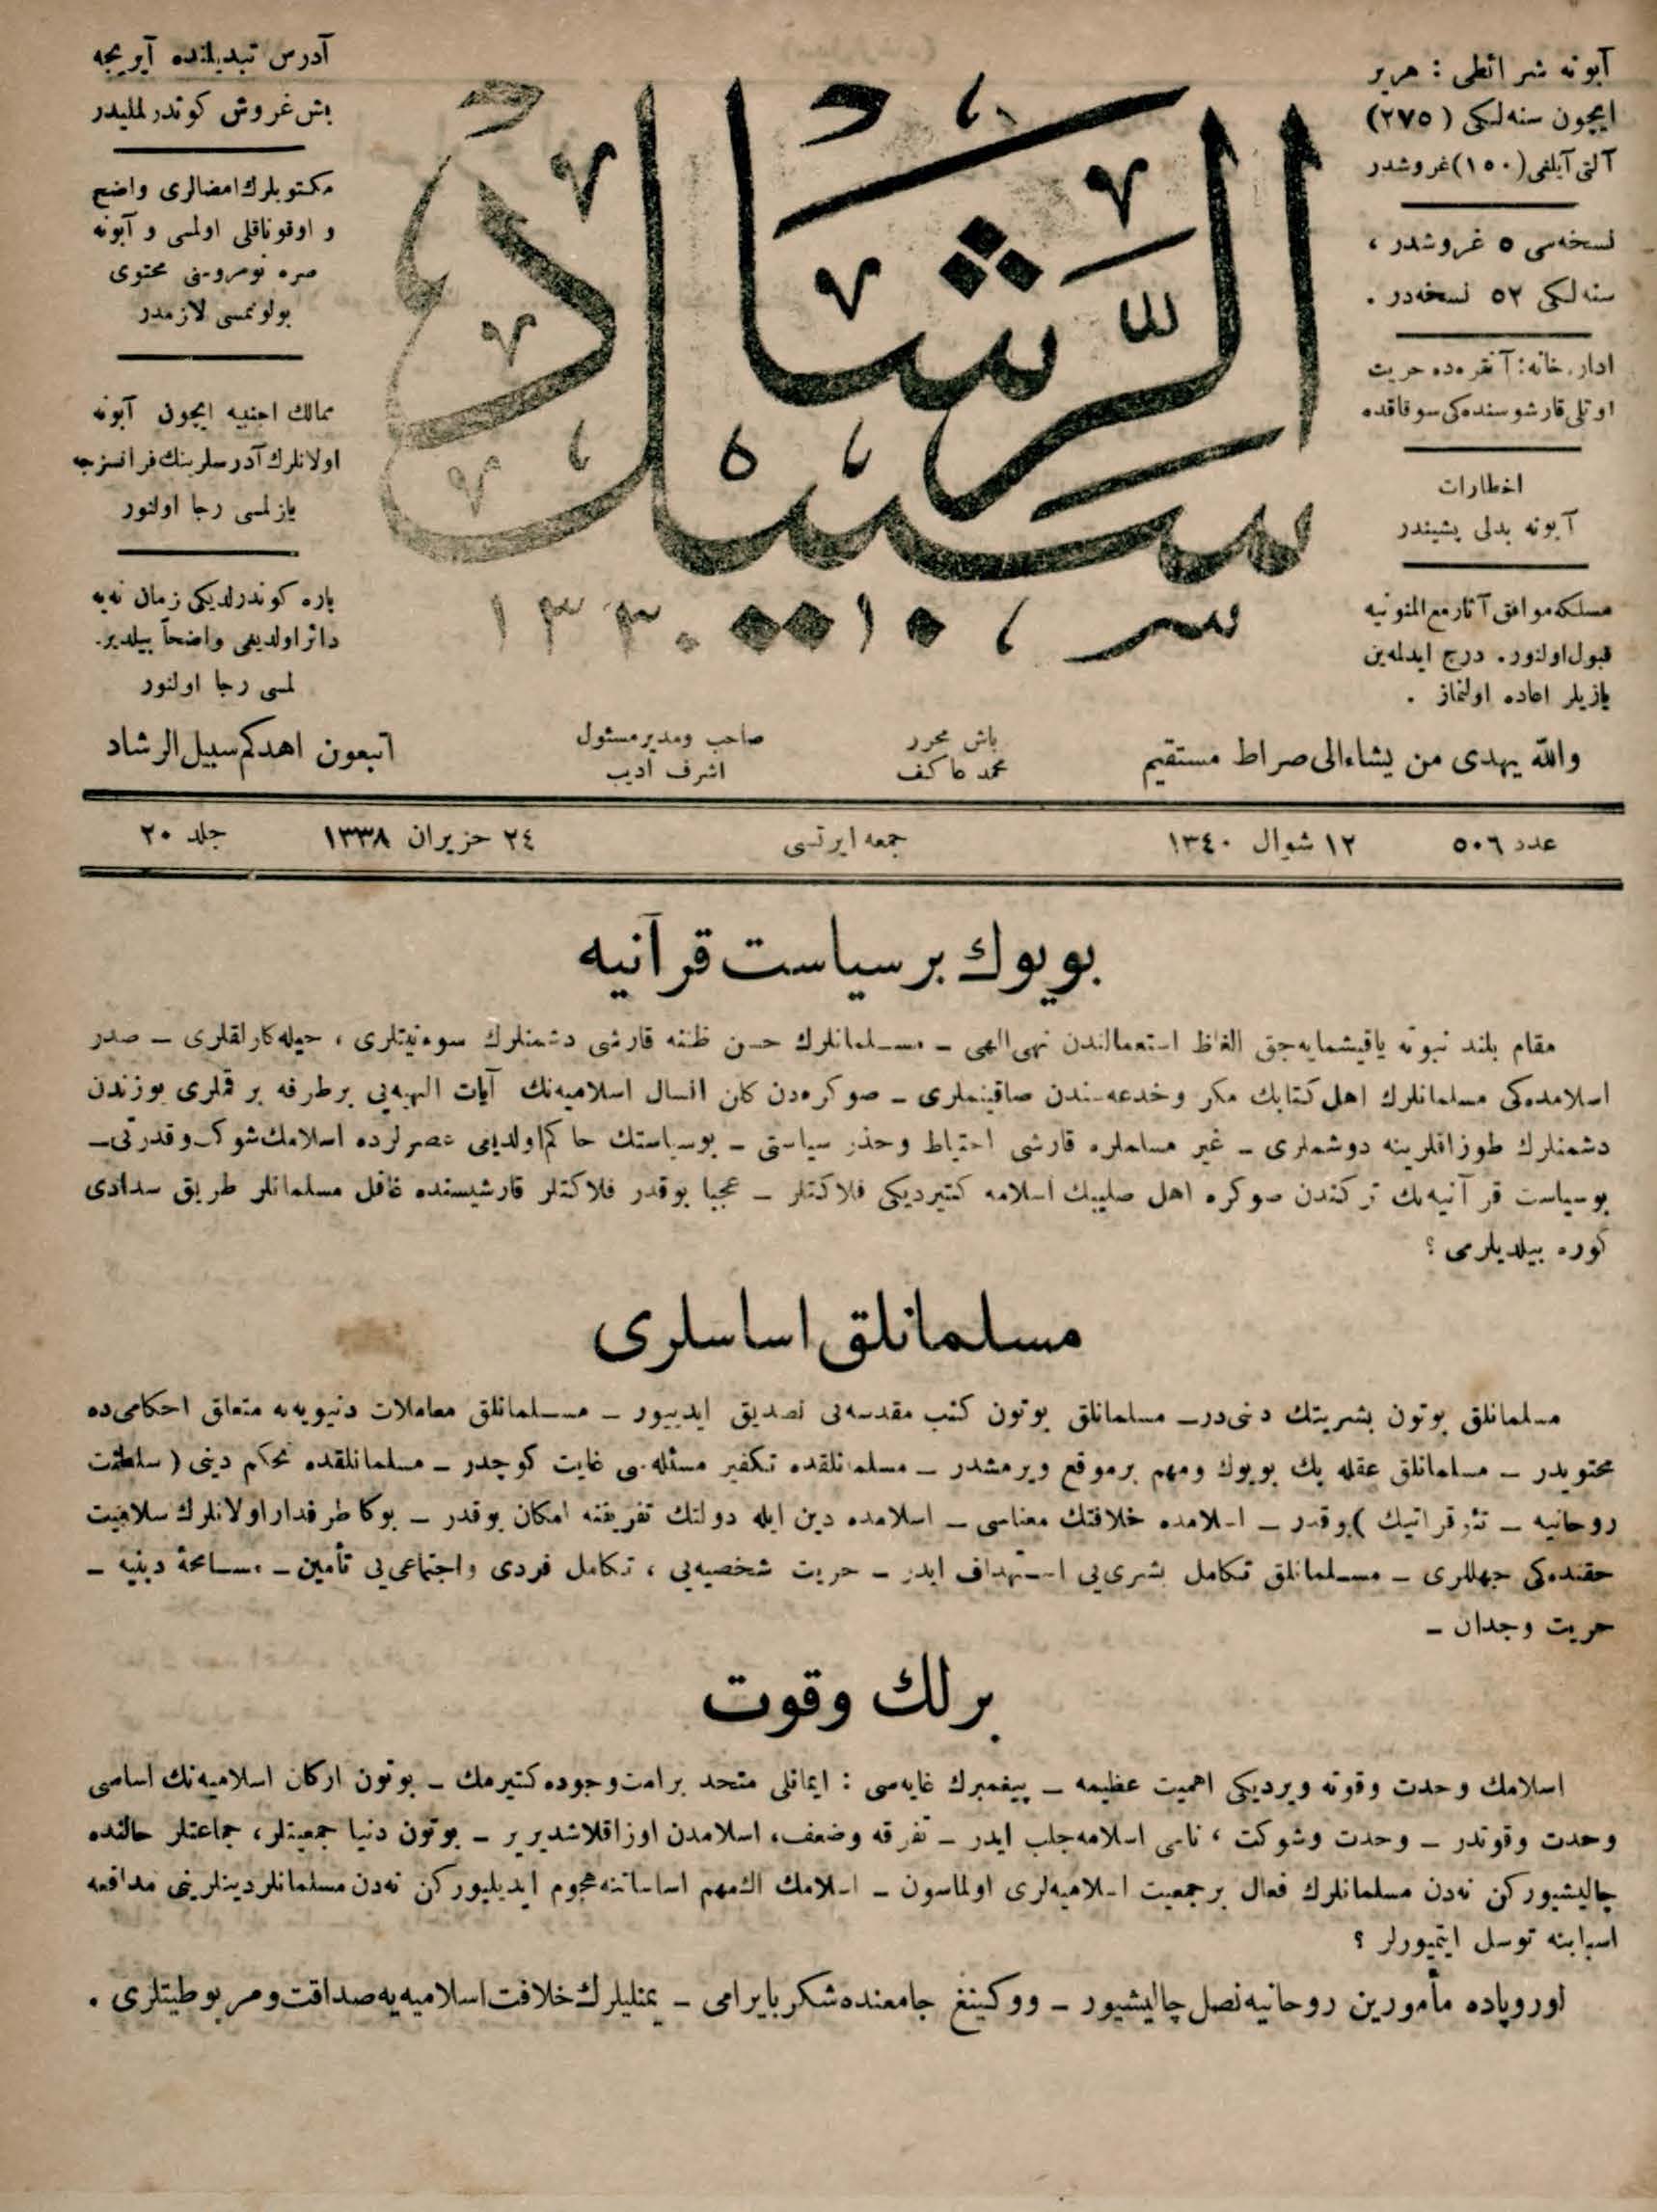 آبونه شرائطی : هر یر
ایچون سنه‌لکی (٢٧٥)
آلتی آیلغی (١٥٠) غروشدر
نسخه‌سی ٥ غروشدر ،
سنه‌لکی ٥٢ نسخه‌در .
اداره‌خانه : آنقره‌ده حریت
اوتلی قارشوسنده‌کی سوقاقده
اخطارات
آبونه بدلی پشیندر
مسلکه موافق آثار مع الممنونیه
قبول اولنور . درج ایدلمه‌ین
یازیلر اعاده اولنماز .
سبیل الرشاد
١٣٣٠
آدرس تبدیلنده آیریجه
بش غروش کوندرلملیدر
مکتوبلرك امضالری واضح
و اوقوناقلی اولمسی و آبونه
صره نومروسنی محتوی
بولونمسی لازمدر
ممالك اجنبیه ایچون آبونه
اولانلرك آدرسلرینك فرانسزجه
یازلمسی رجا اولنور
پاره کوندرلدیکی زمان نه‌یه
دائر اولدیغی واضحاً بیلدیر-
لمسی رجا اولنور
والله یهدی من یشاء الی صراط مستقیم
باش محرر
محمد عاکف
صاحب ومدیر مسئول
اشرف ادیب
اتبعون اهدکم سبیل الرشاد
عدد ٥٠٦ ١٢ شوال ١٣٤٠ جمعه ایرتسی ٢٤ حزیران ١٣٣٨ جلد ٢٠
بویوك بر سیاست قرآنیه
مقام بلند نبوته یاقیشمایه‌جق الفاظ استعمالندن نهی الهی – مسلمانلرك حسن ظننه قارشی دشمنلرك سوءنیتلری ، حیله‌کارلقلری – صدر
اسلامده‌کی مسلمانلرك اهل کتابك مکر وخدعه‌سندن صاقینملری – صوکره‌دن کلن انسال اسلامیه‌نك آیات الهیه‌یی بر طرفه براقملری یوزندن
دشمنلرك طوزاقلرینه دوشملری – غیر مسلملره قارشی احتیاط وحذر سیاستی – بو سیاستك حاکم اولدیغی عصرلرده اسلامك شوکت وقدرتی –
بو سیاست قرآنیه‌نك ترکندن صوکره اهل صلیبك اسلامه کتیردیکی فلاکتلر – عجبا بو قدر فلاکتلر قارشیسنده غافل مسلمانلر طریق سدادی
کوره بیلدیلرمی ؟
مسلمانلق اساسلری
مسلمانلق بوتون بشریتك دینی‌در – مسلمانلق بوتون کتب مقدسه‌یی تصدیق ایدییور – مسلمانلق معاملات دنیویه‌یه متعلق احکامی‌ده
محتویدر – مسلمانلق عقله پك بویوك ومهم بر موقع ویرمشدر – مسلمانلقده تکفیر مسئله‌سی غایت کوجدر – مسلمانلقده تحکم دینی ( سلطنت
روحانیه – تئوقراتیك ) یوقدر – اسلامده خلافتك معناسی – اسلامده دین ایله دولتك تفریقنه امکان یوقدر – بوکا طرفدار اولانلرك سلامیت
حقنده‌کی جهللری – مسلمانلق تکامل بشری‌یی استهداف ایدر – حریت شخصیه‌یی ، تکامل فردی واجتماعی‌یی تأمین – مسامحۀ دینیه –
حریت وجدان –
برلك وقوت
اسلامك وحدت وقوته ویردیکی اهمیت عظیمه – پیغمبرك غایه‌سی : ایمانلی متحد بر امت وجوده کتیرمك – بوتون ارکان اسلامیه‌نك اساسی
وحدت وقوتدر – وحدت وشوکت ، ناسی اسلامه جلب ایدر – تفرقه وضعف، اسلامدن اوزاقلاشدیریر – بوتون دنیا جمعیتلر، جماعتلر حالنده
چالیشیورکن نه‌دن مسلمانلرك فعال بر جمعیت اسلامیه‌لری اولماسون – اسلامك الك مهم اساساتنه هجوم ایدیلیورکن نه‌دن مسلمانلر دینلرینی مدافعه
اسبابنه توسل ایتمیورلر ؟
اوروپاده مأمورین روحانیه نصل چالیشیور – ووکینغ جامعنده شکر بایرامی – یمنلیلرك خلافت اسلامیه‌یه صداقت ومربوطیتلری .